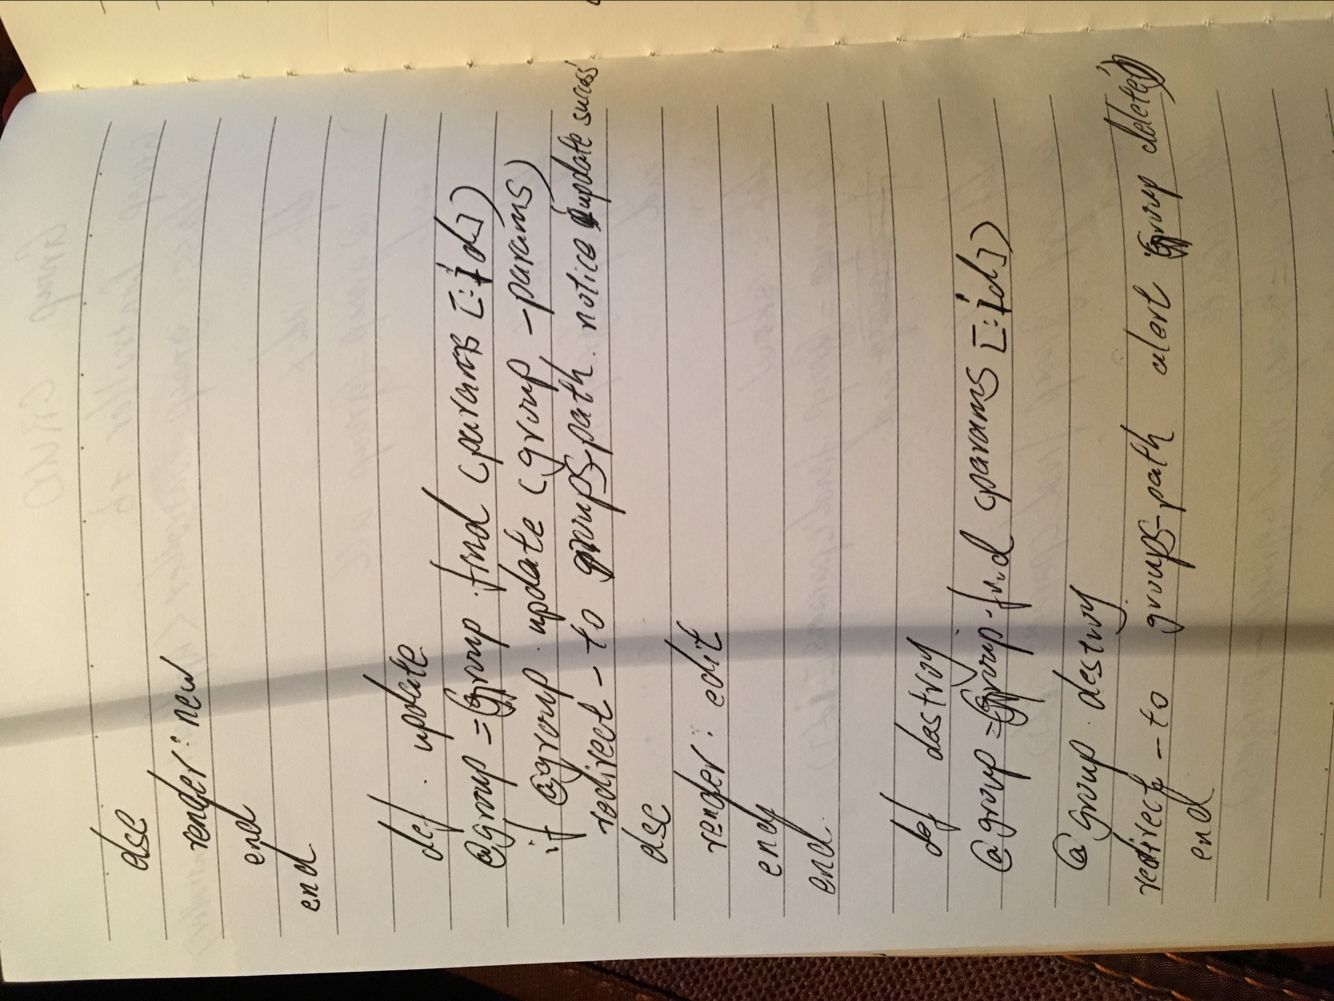 else
render :new
end
end
def update
@group = Group.find (params [:id])
if @group.update (group_params)
redirect_to groups_path. notice 'update success'
else
render : edit
end
end
def destroy
@group = Group.find (params [:id])
@group.destroy
redirect_to groups_path alert 'Group deleted'
end